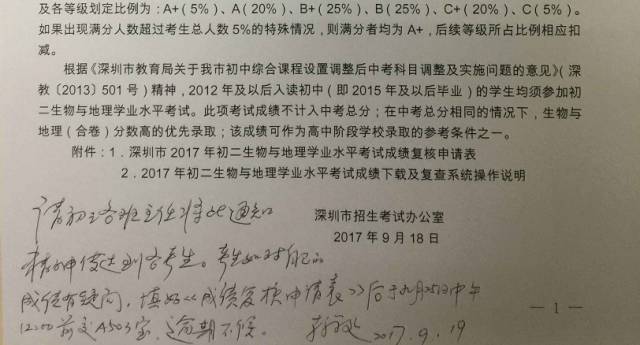 及各等级划定比例为：A+(5%)、A(20%)、B+(25%)、B(25%)、C+(20%)、C(5%)。
如果出现满分人数超过考生总人数5%的特殊情况，则满分者均为A+，后续等级所占比例相应扣
减。
根据《深圳市教育局关于我市初中综合课程设置调整后中考科目调整及实施问题的意见》（深
教〔2013〕501号）精神，2012年及以后入读初中（即2015年及以后毕业）的学生均须参加初
二生物与地理学业水平考试。此项考试成绩不计入中考总分；在中考总分相同的情况下，生物与
地理（合卷）分数高的优先录取；该成绩可作为高中阶段学校录取的参考条件之一。
附件：1．深圳市2017年初二生物与地理学业水平考试成绩复核申请表
2．2017年初二生物与地理学业水平考试成绩下载及复查系统操作说明
深圳市招生考试办公室
2017年9月18日
请初三各班主任将此通知
精神传达到各考生。考生如对自己的
成绩有疑问，填好《成绩复核申请表》后于九月25日中午
12:00前交A503室，逾期不候。
2017.9.19
— 1 —